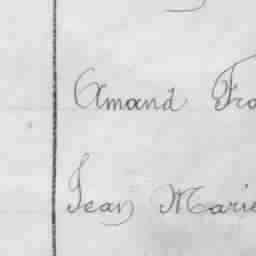 Amand Fra
Jean Marie